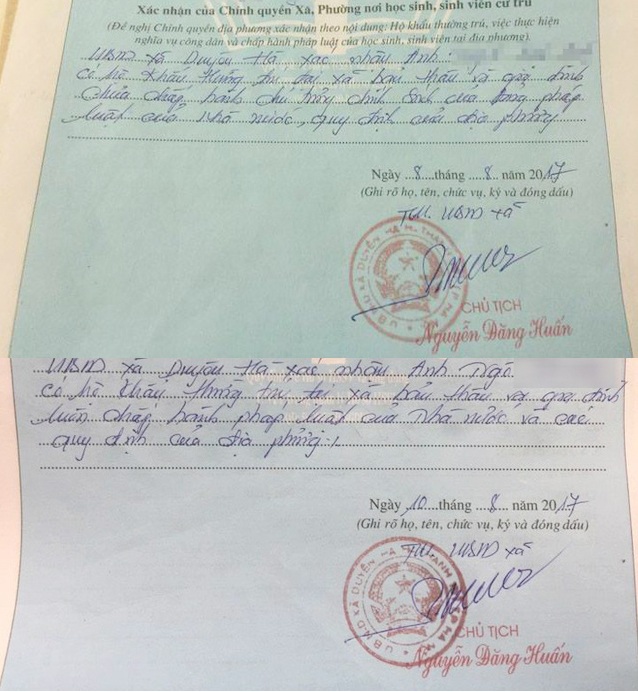 Xác nhận của Chính quyền Xã, Phường nơi học sinh, sinh viên cư trú
(Đề nghị Chính quyền địa phương xác nhận theo nội dung: Hộ khẩu thường trú, việc thực hiện
nghĩa vụ công dân và chấp hành pháp luật của học sinh, sinh viên tại địa phương).
UBND xã Duyên Hà xác nhận Anh:
có hộ khẩu thường trú tại xã bản thân và gia đình
chưa chấp hành chủ trương chính sách của pháp
luật của Nhà nước, quy định của địa phương
Ngày 8 tháng 8 năm 2017
(Ghi rõ họ, tên, chức vụ, ký và đóng dấu)
TM. UBND xã
CHỦ TỊCH
Nguyễn Đăng Huấn
UBND xã Duyên Hà xác nhận Anh Ngô
có hộ khẩu thường trú tại xã bản thân và gia đình
luôn chấp hành pháp luật của Nhà nước và các
quy định của địa phương./.
Ngày 10 tháng 8 năm 2017
(Ghi rõ họ, tên, chức vụ, ký và đóng dấu)
TM. UBND xã
CHỦ TỊCH
Nguyễn Đăng Huấn